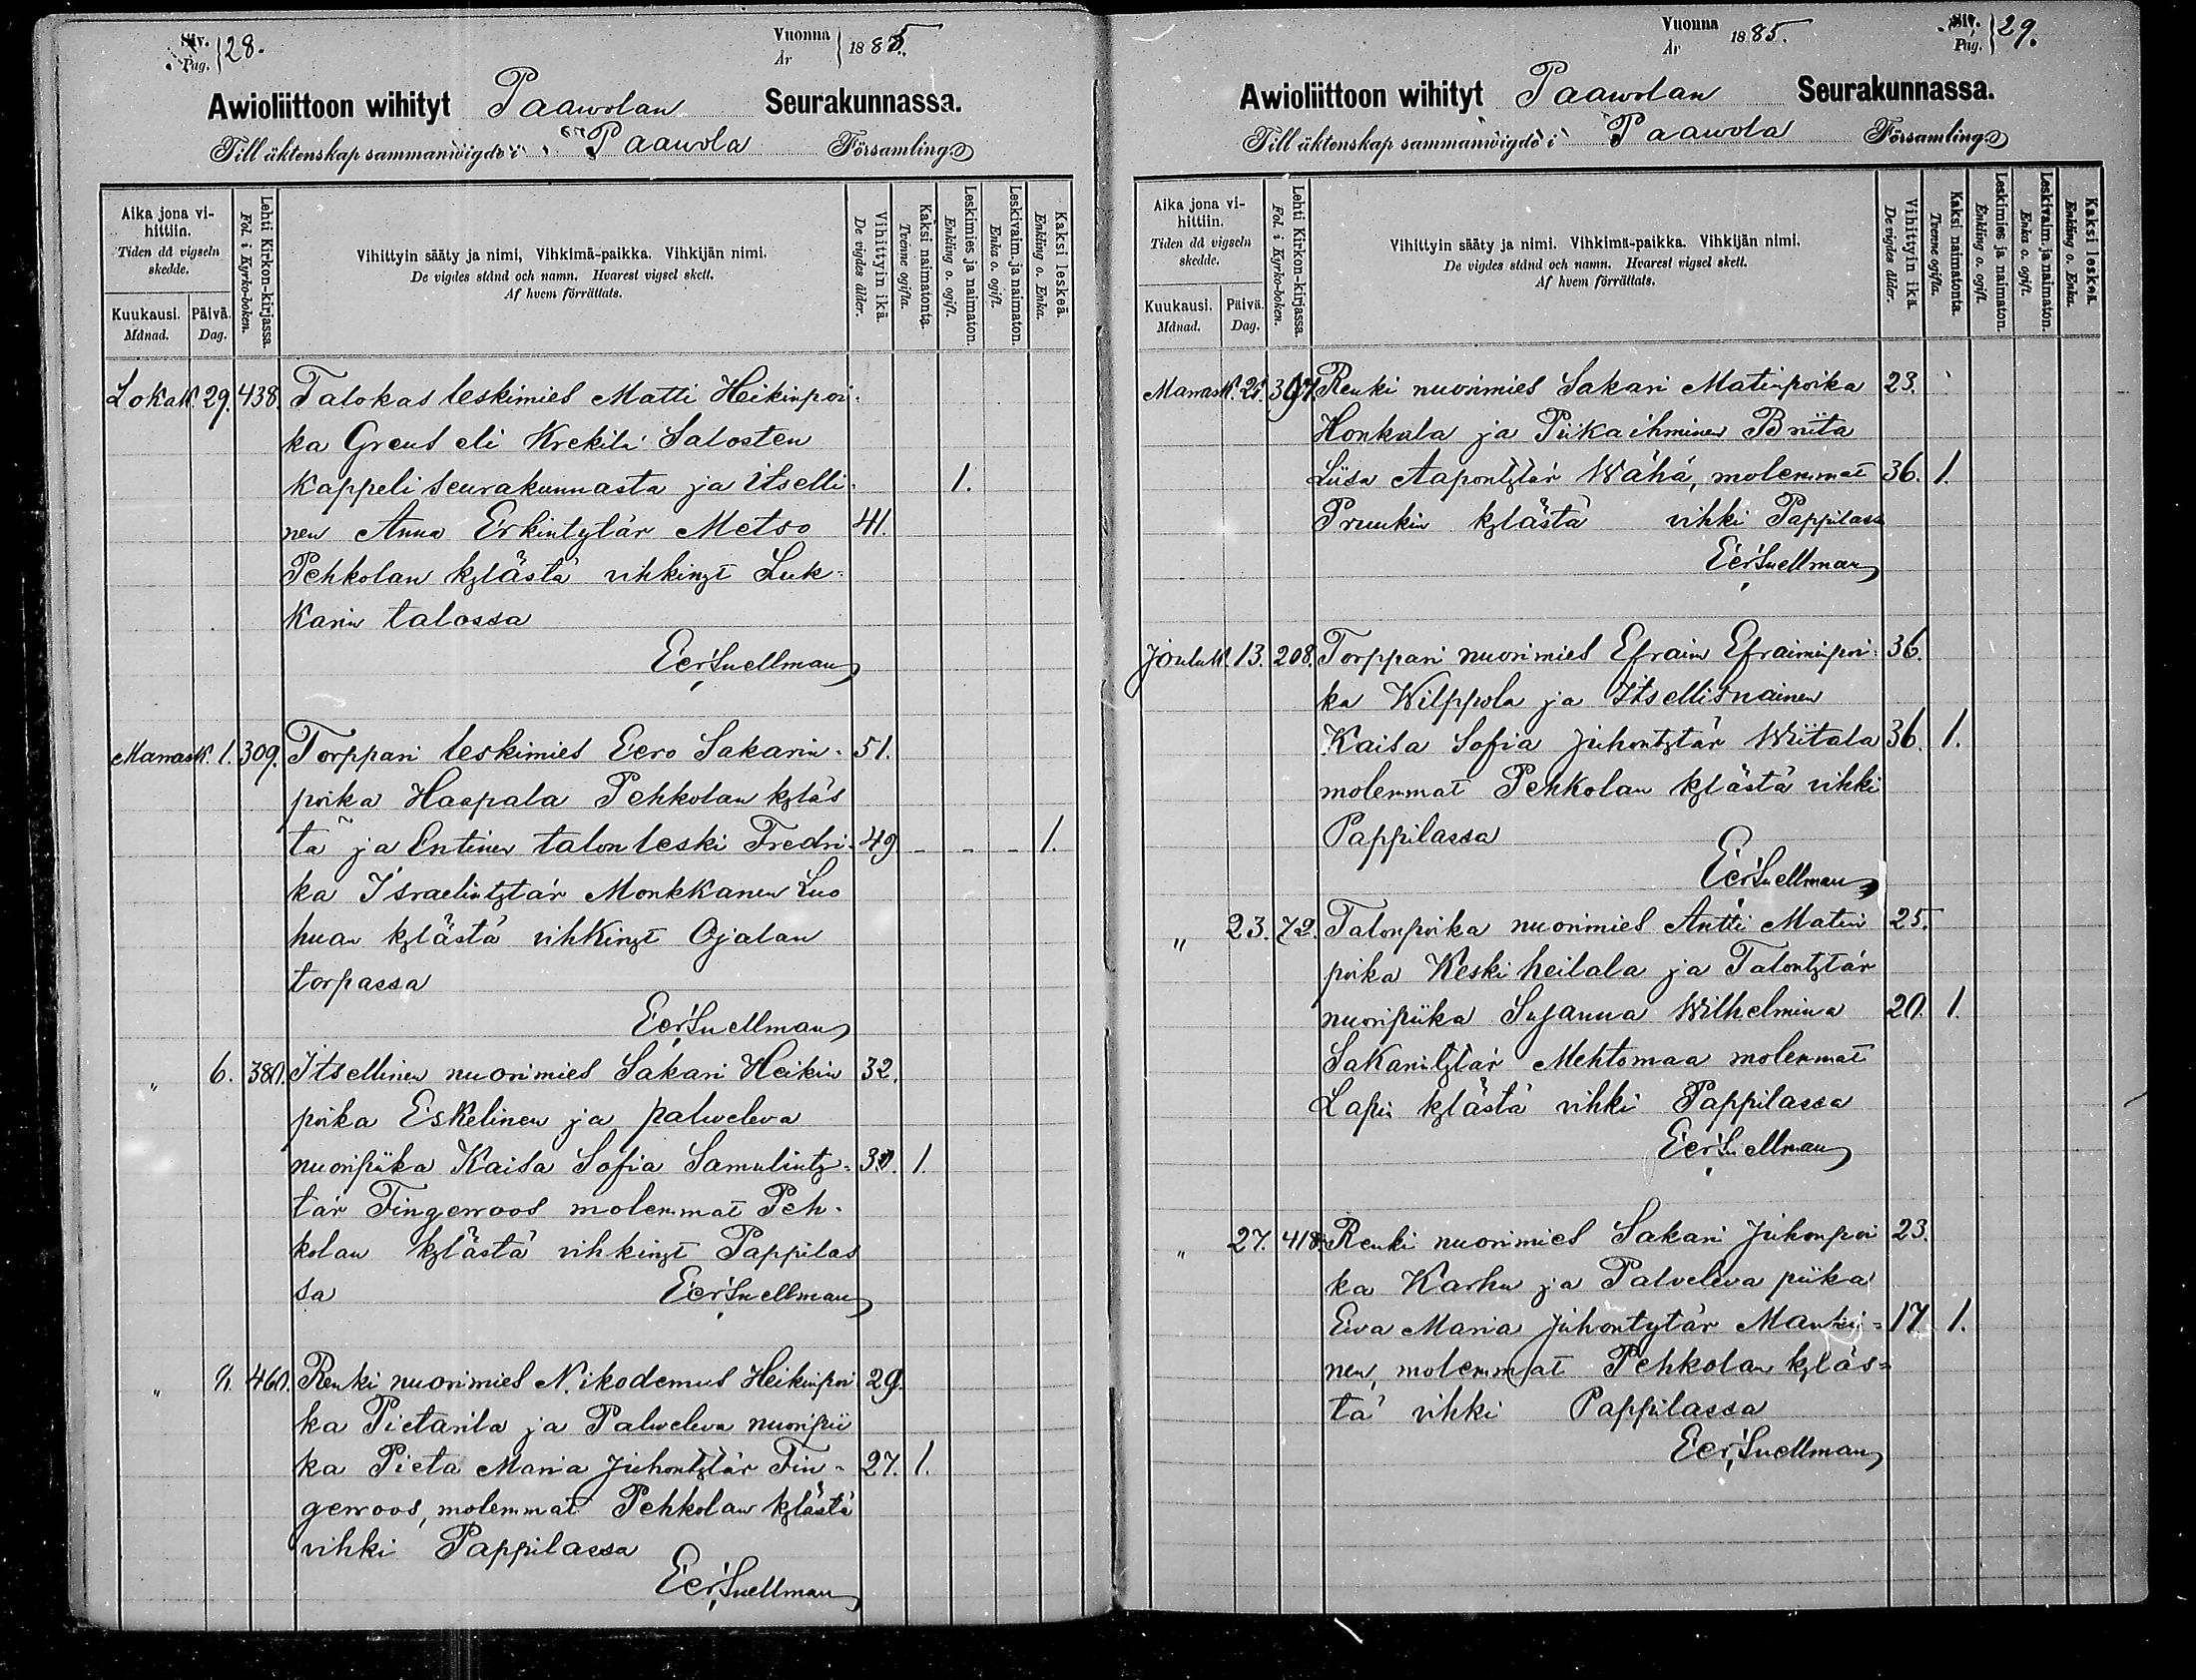 Siv. Pag. 128.
Vuonna År 1885.
Awioliittoon wihityt Paawolan Seurakunnassa.
Till äktenskap sammanwigde i Paawola Församling
Aika jona vihittiin.
Tiden då vigseln skedde.
Kuukausi. Månad.
Päivä. Dag.
Lehti Kirkon-kirjassa. Fol. i Kyrko-boken.
Vihittyin sääty ja nimi, Vihkimä-paikka. Vihkijän nimi.
De vigdes stånd och namn. Hvarest vigsel skett.
Af hvem förrättats.
Vihittyin ikä. De vigdes ålder.
Kaksi naimatonta. Tvenne ogifta.
Leskimies ja naimaton. Enkling o. ogift.
Leskivaim. ja naimaton. Enka o. ogift.
Kaksi leskeä. Enkling o. Enka.
Lokak. 29. 438. Talokas leskimies Matti Heikinpoi-
ka Greus eli Krekilä Salosten
Kappeli seurakunnasta ja itselli- 1.
nen Anna Erkintytär Metso 41.
Pehkolan kylästä vihkinyt Luk-
karin talossa
Eer. Snellman
Marrask. 1. 309. Torppari leskimies Eero Sakarin- 51.
poika Haapala Pehkolan kyläs
tä ja Entinen talon leski Fredri- 49 - - - 1.
ka Israelintytär Monkkanen Luo
huan kylästä vihkinyt Ojalan
torpassa
Eer. Snellman
" 6. 380. Itsellinen nuorimies Sakari Heikin 32.
poika Eskelinen ja palweleva
nuoripiika Kaisa Sofia Samulinty- 30. 1.
tär Fingerroos molemmat Peh-
kolan kylästä vihkinyt Pappilas
sa Eer. Snellman
" 460. Renki nuorimies Nikodemus Heikinpoi 29.
ka Pietarila ja Palweleva nuoripii
ka Pieta Maria Juhontytär Fin- 27. 1.
gerroos, molemmat Pehkolan kylästä
vihki Pappilassa
Eer. Snellman
Siv. Pag. 129.
Vuonna År 1885.
Awioliittoon wihityt Paawolan Seurakunnassa.
Till äktenskap sammanwigde i Paawola Församling
Aika jona vihittiin.
Tiden då vigseln skedde.
Kuukausi. Månad.
Päivä. Dag.
Lehti Kirkon-kirjassa. Fol. i Kyrko-boken.
Vihittyin sääty ja nimi. Vihkimä-paikka. Vihkijän nimi.
De vigdes stånd och namn. Hvarest vigsel skett.
Af hvem förrättats.
Vihittyin ikä. De vigdes ålder.
Kaksi naimatonta. Tvenne ogifta.
Leskimies ja naimaton. Enkling o. ogift.
Leskivaim. ja naimaton. Enka o. ogift.
Kaksi leskeä Enkling o. Enka.
Marrask. Renki nuorimies Sakari Matinpoika 23.
Honkala ja Piikaihminen Briita
Liisa Aapontytär Wähä, molemmat 36. 1.
Pruukin kylästä vihki Pappilass
Eer. Snellman
Jouluk. 13. 208. Torppari nuorimies Efraim Efraiminpoi- 36.
ka Wilppola ja Itsellisnainen
Kaisa Sofia Juhontytär Wiitala 36. 1.
molemmat Pehkolan kylästä vihki
Pappilassa
Eer. Snellman
" 23. 72. Talonpoika nuorimies Antti Matin 25.
poika Keskiheilala ja Talontytär
nuoripiika Susanna Wilhelmina 20. 1.
Sakarintytär Mehtomaa molemmat
Lapin kylästä vihki Pappilassa
Eer. Snellman
" 27. 418. Renki nuorimies Sakari Juhonpoi 23.
ka Karhu ja Palveleva piika
Eeva Maria Juhontytär Manni= 17. 1.
nen, molemmat Pehkolan kyläs=
tä vihki Pappilassa
Eer. Snellman